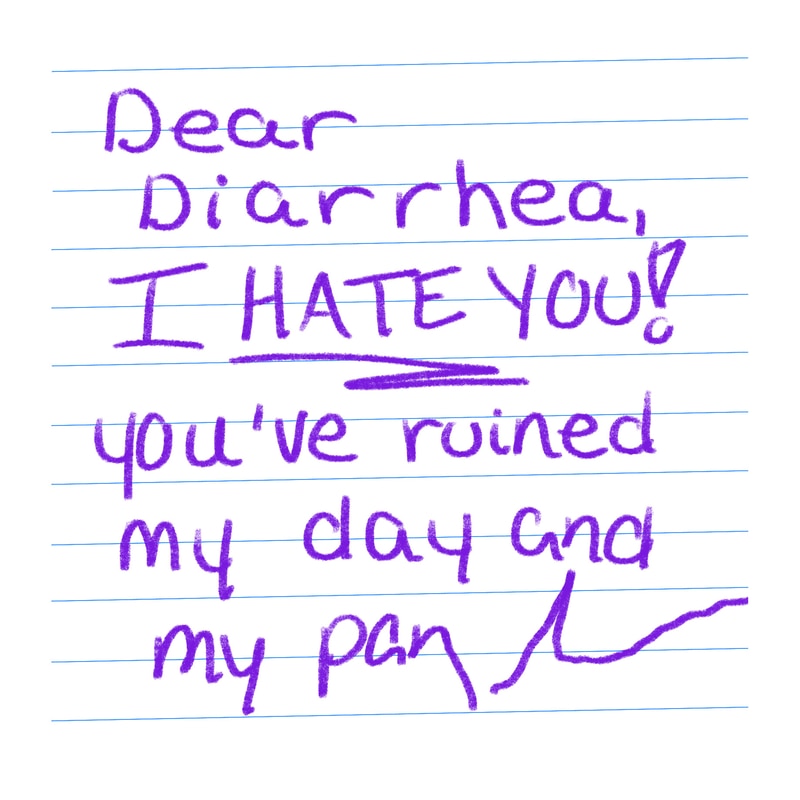 Dear
Diarrhea,
I HATE YOU!
you've ruined
my day and
my pan